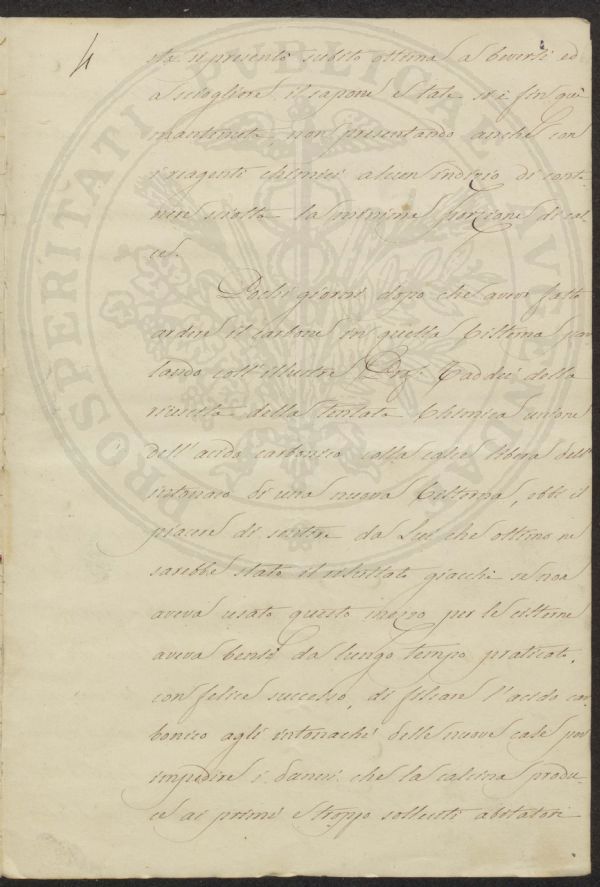 4
sta si presentò subito ottima a beversi ed
a sciogliere il sapone e tale si è fin quì
mantenuta, non presentando anche con
i reagenti chimici alcun indizio di conte-
nere sciolta la minima porzione di cal-
ce.
Pochi giorni dopo che aveva fatto
ardere il carbone in quella Cisterna par-
lando coll'illustre Prof. Taddei della
riuscita della tentata Chimica unione
dell'acido carbonico colla calce libera dell'
intonaco di una nuova Cisterna, ebbi il
piacere di sentire da Lui che ottimo ne
sarebbe stato il resultato giacchè se non
aveva usato questo mezzo per le cisterne
aveva bensì da lungo tempo praticato,
con felice successo, di fissare l'acido car-
bonico agli intonachi delle nuove case per
impedire i danni che la calcina produ-
ce ai primi e troppo solleciti abitatori
PROSPERITATI PUBLICAE AUGENDAE